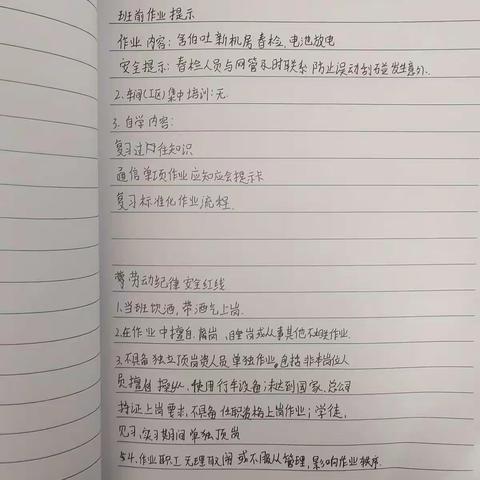 班前作业提示
作业内容：舍伯吐新机房春检，电池放电
安全提示：春检人员与网管及时联系防止误动刮碰发生意外.
2.车间(工区)集中培训：无.
3.自学内容：
复习过往知识
通信单项作业应知应会提示卡
复习标准化作业流程.
劳动纪律安全红线
1.当班饮酒,带酒气上岗.
2.在作业中擅自离岗、睡岗或从事其他不相关作业.
3.不具备独立顶岗资人员单独作业。包括非本岗位人
员擅自操纵、使用行车设备未达到国家、总公司
持证上岗要求,不具备任职资格上岗作业；学徒,
见习,实习期间单独顶岗
4.作业职工无理取闹或不服从管理,影响作业秩序.